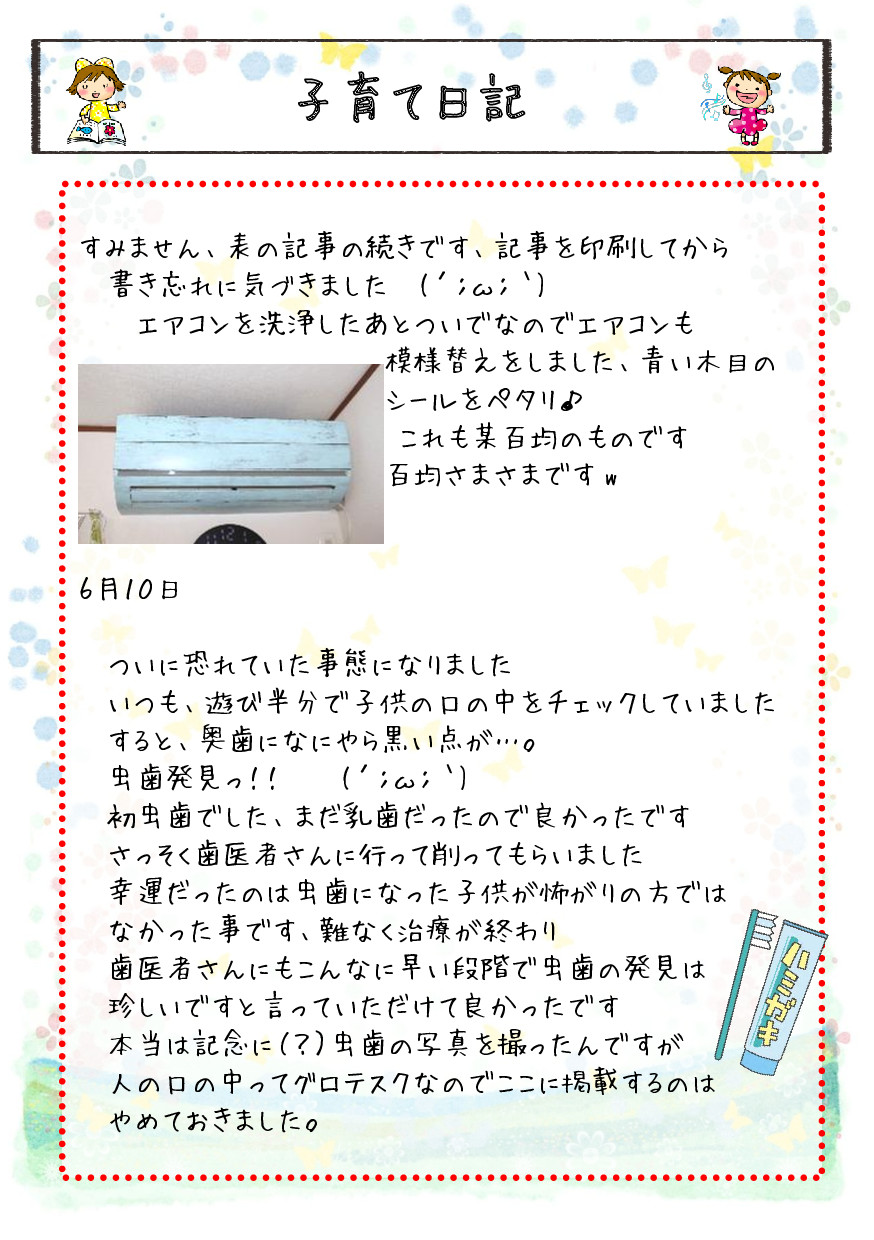 子育て日記
すみません、表の記事の続きです、記事を印刷してから
書き忘れに気づきました　(´;ω;`)
エアコンを洗浄したあとついでなのでエアコンも
模様替えをしました、青い木目の
シールをペタリ♪
これも某百均のものです
百均さまさまですw
6月10日
ついに恐れていた事態になりました
いつも、遊び半分で子供の口の中をチェックしていました
すると、奥歯になにやら黒い点が…。
虫歯発見っ！！　　(´;ω;`)
初虫歯でした、まだ乳歯だったので良かったです
さっそく歯医者さんに行って削ってもらいました
幸運だったのは虫歯になった子供が怖がりの方では
なかった事です、難なく治療が終わり
歯医者さんにもこんなに早い段階で虫歯の発見は
珍しいですと言っていただけて良かったです
本当は記念に(？)虫歯の写真を撮ったんですが
人の口の中ってグロテスクなのでここに掲載するのは
やめておきました。
ハミガキ